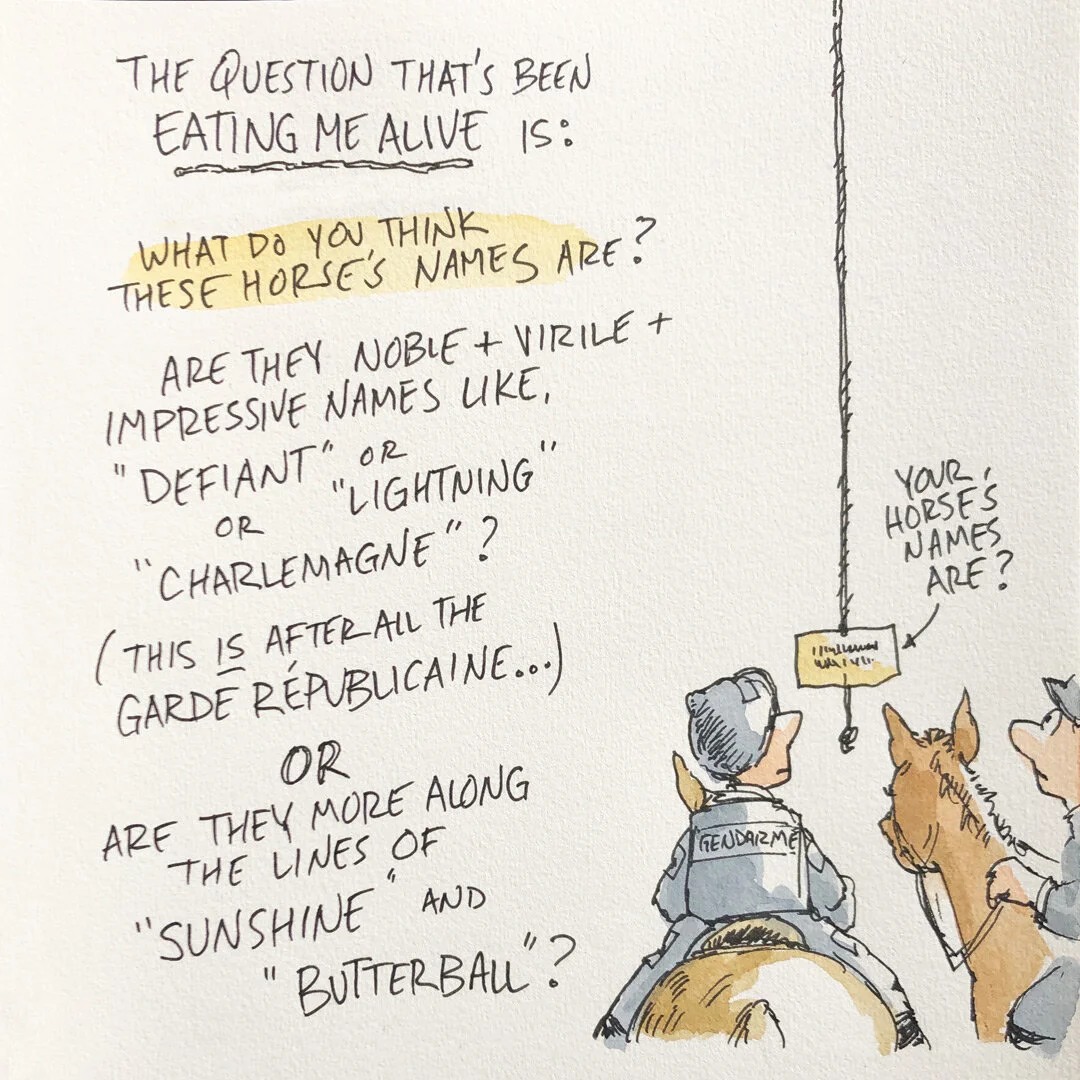 THE QUESTION THAT'S BEEN
EATING ME ALIVE IS:
WHAT DO YOU THINK
THESE HORSE'S NAMES ARE?
ARE THEY NOBLE + VIRILE +
IMPRESSIVE NAMES LIKE,
"DEFIANT" OR
"LIGHTNING"
OR
"CHARLEMAGNE"?
(THIS IS AFTER ALL THE
GARDE RÉPUBLICAINE...)
OR
ARE THEY MORE ALONG
THE LINES OF
"SUNSHINE" AND
"BUTTERBALL"?
YOUR
HORSE'S
NAMES
ARE?
GENDARME